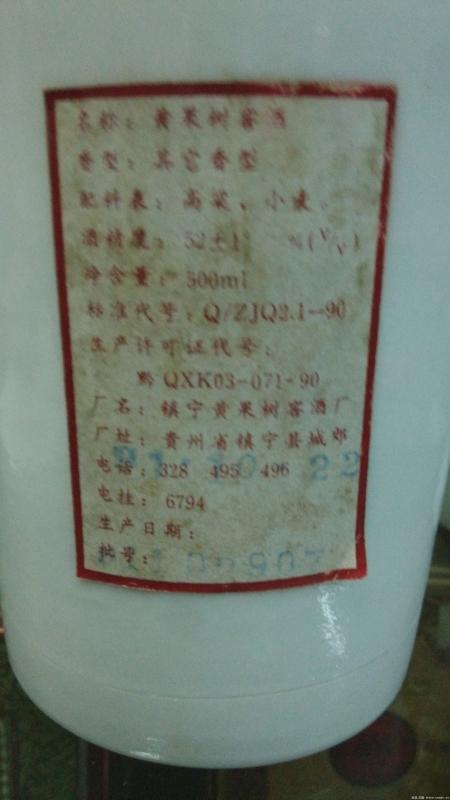 名称：黄果树窖酒
香型：其它香型
配料表：高粱、小麦
酒精度：52±1 %(V/V)
净含量：500ml
标准代号：Q/ZJQ2.1--90
生产许可证代号：
黔QXK03-071-90
厂名：镇宁黄果树窖酒厂
厂址：贵州省镇宁县城郊
电话：328 495 496
电挂：6794
生产日期：
批号：